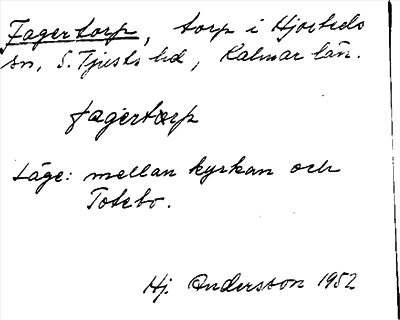 Fagertorp, torp i Hjorteds
sn, S. Tjusts hd, Kalmar län.
fagertærp
Läge: mellan kyrkan och
Totebo.
Hj. Andersson 1952